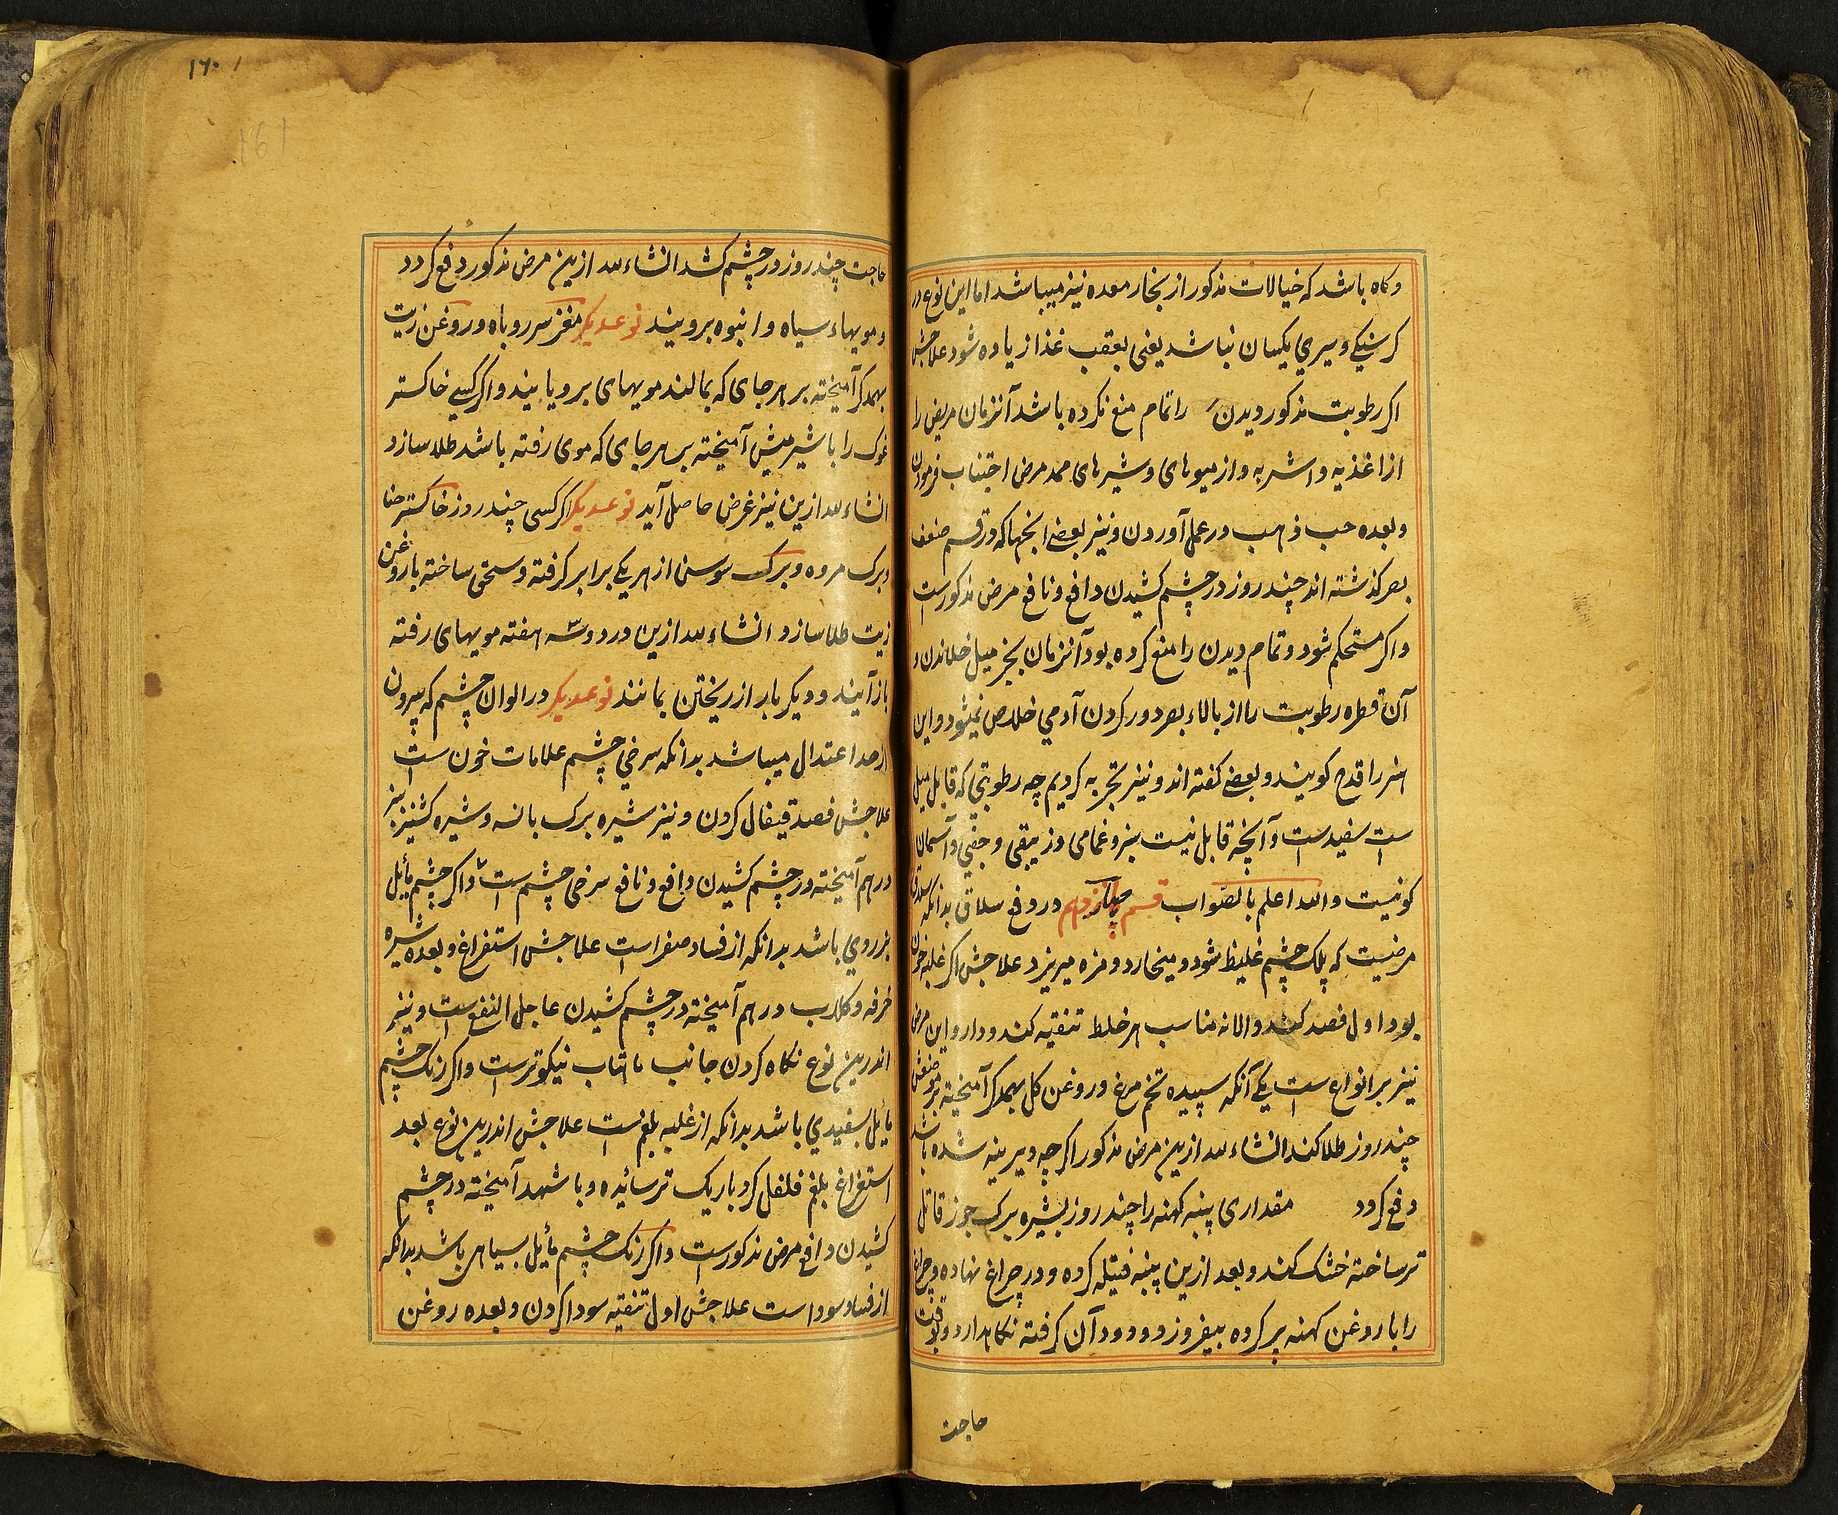 وکاه باشد که خیالات مذکور از بخار معده نیز میباشد اما این نوع در
کرسنکے وسیري یکسان نباشد یعنی بعقب غذا زیاده شود علاجش
اکر رطوبت مذکور دیدن را تمام منع نکرده باشد آنزمان مریض را
از اغذیه و اشربه و از میوهای و شیرهای ممد مرض اجتناب فرمودن
وبعده حب ذهب در عمل آوردن ونیز بعضے انجها که در قسم ضعف
بصر کذشته اند چند روز در چشم کشیدن دافع و نافع مرض مذکور است
واکر مستحکم شود وتمام دیدن را منع کرده بود آنزمان بجز میل خلاندن و
آن قطره رطوبت را از بالاء بصر دور کردن آدمي خلاص نمیشود واین
هنر را قدح کویند وبعضے کفته اند ونیز تجربه کردیم چه رطوبتي که قابل میل
است سفید است و آنچه قابل نیست سبز وغمامی و زیبقی و جصّي و آسمان
کونیست والله اعلم بالصواب قسم چهاردهم در دفع سلاق بدانکه سلاق
مرضیت که پلک چشم غلیظ شود ومیخارد ومزه میریزد علاجش اکر غلبه خون
بود اول فصد کند والا نه مناسب هر خلط تنقیه کند ودارو این مرض
نیز بر انواع است یکے آنکه سپیده تخم مرغ وروغن کل بهمدکر آمیخته بر موضعش
چند روز طلا کند انشاءلله ازین مرض مذکور اکرچه دیرینه شده باشد
دفع کردد مقداری پنبه کهنه را چند روز بشیره برک جوز قاتل
تر ساخته خشک کند وبعد ازین پنبه فتیله کرده ودر چراغ نهاده وچراغ
را با روغن کهنه پر کرده بیفروزد ودود آن کرفته نکاهدارد وبوقت
حاجت
١٦٠
161
حاجت چند روز در چشم کشد انشاءلله ازین مرض مذکور دفع کردد
ومویهاء سیاه وانبوه برویند نوعدیکر مغز سر روباه وروغن زیت
بهمدکر آمیخته بر هر جای که بمالند مویهای برویانیند واکر کسے خاکستر
غوک را با شیر میش آمیخته بر هر جای که موی رفته باشد طلا سازد
انشاءلله ازین نیز غرض حاصل آید نوعدیکر اکر کسی چند روز خاکستر حنا
وبرک مروه وبرک سوسن از هر یکے برابر کرفته وسحق ساخته با روغن
زیت طلا سازد انشاءلله ازین در دو سه هفته مویهای رفته
باز آیند ودیکر بار از ریختن بمانند نوعدیکر در الوان چشم که بیرون
از حد اعتدال میباشد بدانکه سرخي چشم علامات خون است
علاجش فصد قیفال کردن ونیز شیره برک بانسه وشیره کشنیز سبز
در هم آمیخته در چشم کشیدن دافع و نافع سرخی چشم است واکر چشم مائل
بزردي باشد بدانکه از فساد صفراست علاجش استفراغ وبعده شیره
خرفه وکلاب در هم آمیخته در چشم کشیدن عاجل النفع است ونیز
اندرین نوع نکاه کردن جانب ماهتاب نیکوتر است واکر رنک چشم
مائل بسفیدي باشد بدانکه از غلبه بلغم است علاجش اندرین نوع بعد
استفراغ بلغم فلفل کرد باریک تر سائیده وبا شهد آمیخته در چشم
کشیدن دافع مرض مذکور است واکر رنک چشم مائل بسیاهی باشد بدانکه
از فساد سوداست علاجش اول تنقیه سودا کردن وبعده روغن